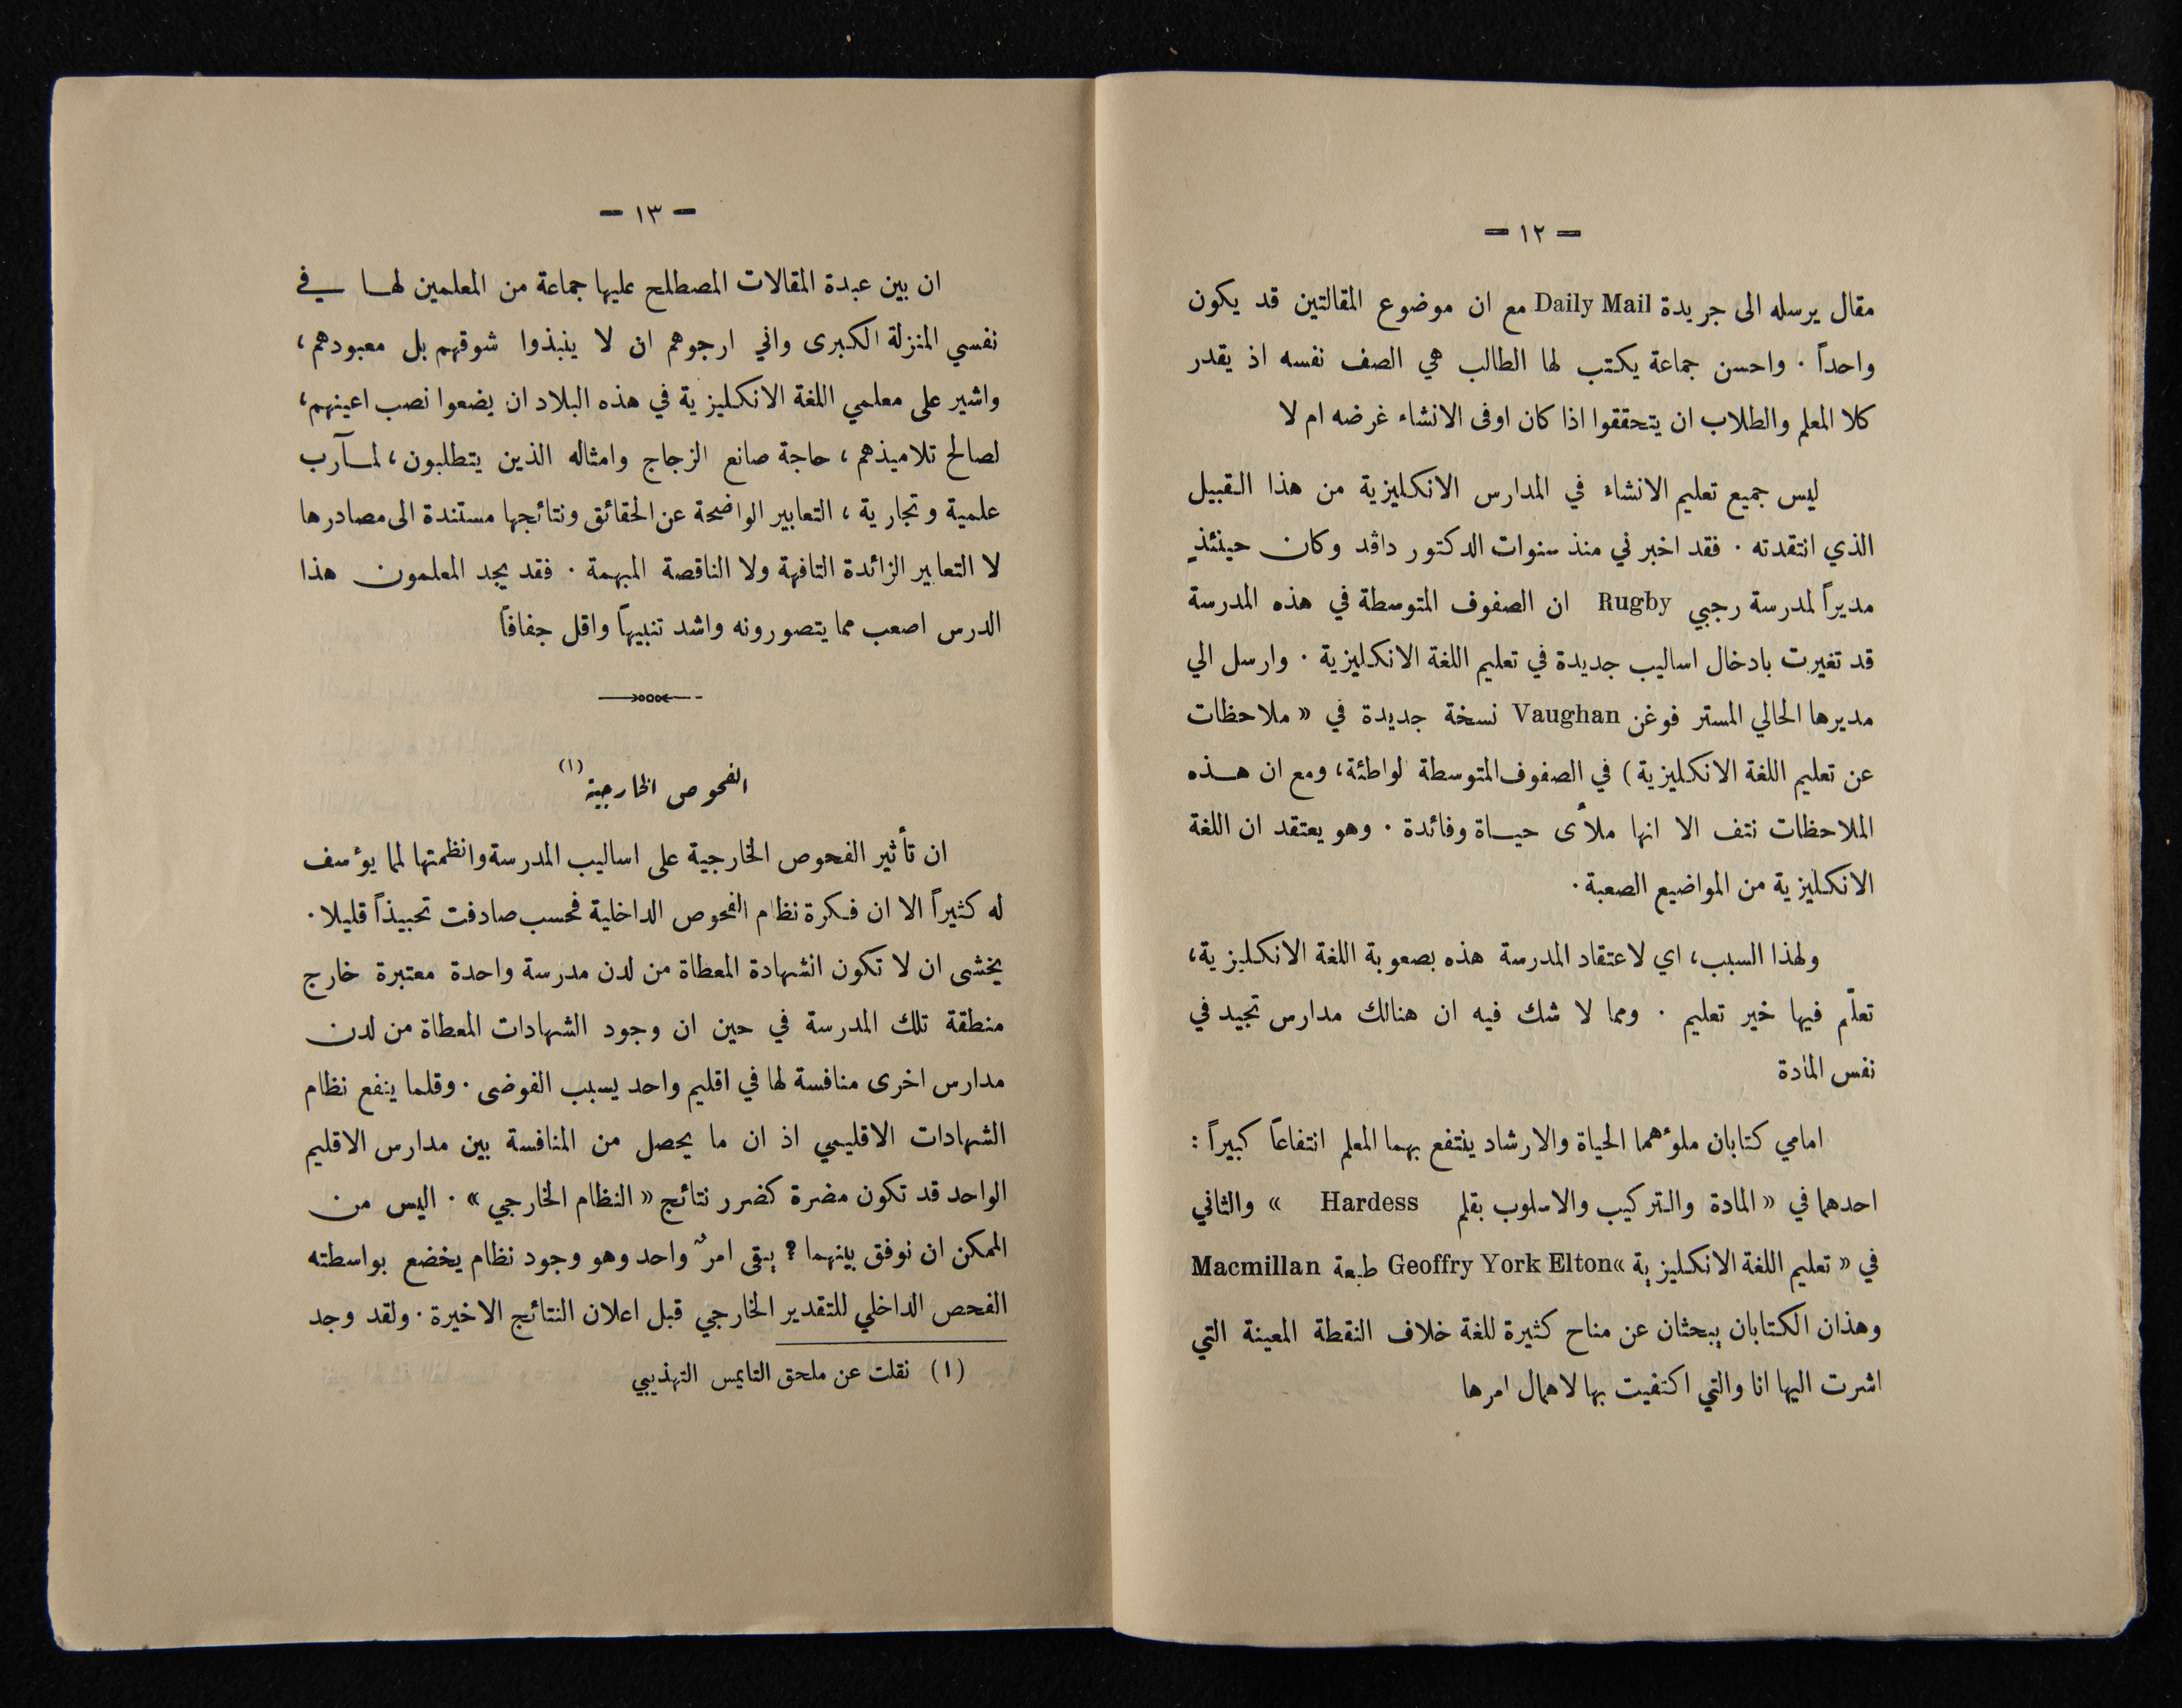 — ١٢ —
مقال يرسله الى جريدة Daily Mail مع ان موضوع المقالتين قد يكون
واحداً . واحسن جماعة يكتب لها الطالب هي الصف نفسه اذ يقدر
كلا المعلم والطلاب ان يتحققوا اذا كان اوفى الانشاء غرضه ام لا
ليس جميع تعليم الانشاء في المدارس الانكليزية من هذا القبيل
الذي انتقدته . فقد اخبرني منذ سنوات الدكتور داڤد وكان حينئذٍ
مديراً لمدرسة رجبي Rugby ان الصفوف المتوسطة في هذه المدرسة
قد تغيرت بادخال اساليب جديدة في تعليم اللغة الانكليزية . وارسل الي
مديرها الحالي المستر فوغن Vaughan نسخة جديدة في « ملاحظات
عن تعليم اللغة الانكليزية ) في الصفوف المتوسطة لواطئة، ومع ان هذه
الملاحظات نتف الا انها ملأى حياة وفائدة . وهو يعتقد ان اللغة
الانكليزية من المواضيع الصعبة .
ولهذا السبب، اي لاعتقاد المدرسة هذه بصعوبة اللغة الانكليزية،
تعلّم فيها خير تعليم . ومما لا شك فيه ان هنالك مدارس تجيد في
نفس المادة
امامي كتابان ملوءهما الحياة والارشاد ينتفع بهما المعلم انتفاعاً كبيراً :
احدهما في « المادة والتركيب والاسلوب بقلم Hardess » والثاني
في « تعليم اللغة الانكليزية » Geoffry York Elton طبعة Macmillan
وهذان الكتابان يبحثان عن مناح كثيرة للغة خلاف النقطة المعينة التي
اشرت اليها انا والتي اكتفيت بها لاهمال امرها
— ١٣ —
ان بين عبدة المقالات المصطلح عليها جماعة من المعلمين لها في
نفسي المنزلة الكبرى واني ارجوهم ان لا ينبذوا شوقهم بل معبودهم،
واشير على معلمي اللغة الانكليزية في هذه البلاد ان يضعوا نصب اعينهم،
لصالح تلاميذهم، حاجة صانع الزجاج وامثاله الذين يتطلبون، لمآرب
علمية وتجارية، التعابير الواضحة عن الحقائق ونتائجها مستندة الى مصادرها
لا التعابير الزائدة التافهة ولا الناقصة المبهمة . فقد يجد المعلمون هذا
الدرس اصعب مما يتصورونه واشد تنبيهاً واقل جفافاً
الفحوص الخارجية (١)
ان تأثير الفحوص الخارجية على اساليب المدرسة وانظمتها لما يؤسف
له كثيراً الا ان فكرة نظام الفحوص الداخلية فحسب صادفت تحبيذاً قليلا .
يخشى ان لا تكون الشهادة المعطاة من لدن مدرسة واحدة معتبرة خارج
منطقة تلك المدرسة في حين ان وجود الشهادات المعطاة من لدن
مدارس اخرى منافسة لها في اقليم واحد يسبب الفوضى . وقلما ينفع نظام
الشهادات الاقليمي اذ ان ما يحصل من المنافسة بين مدارس الاقليم
الواحد قد تكون مضرة كضرر نتائج « النظام الخارجي » . اليس من
الممكن ان نوفق بينهما ؟ يبقى امرٌ واحد وهو وجود نظام يخضع بواسطته
الفحص الداخلي للتقدير الخارجي قبل اعلان النتائج الاخيرة . ولقد وجد
(١) نقلت عن ملحق التايمس التهذيبي